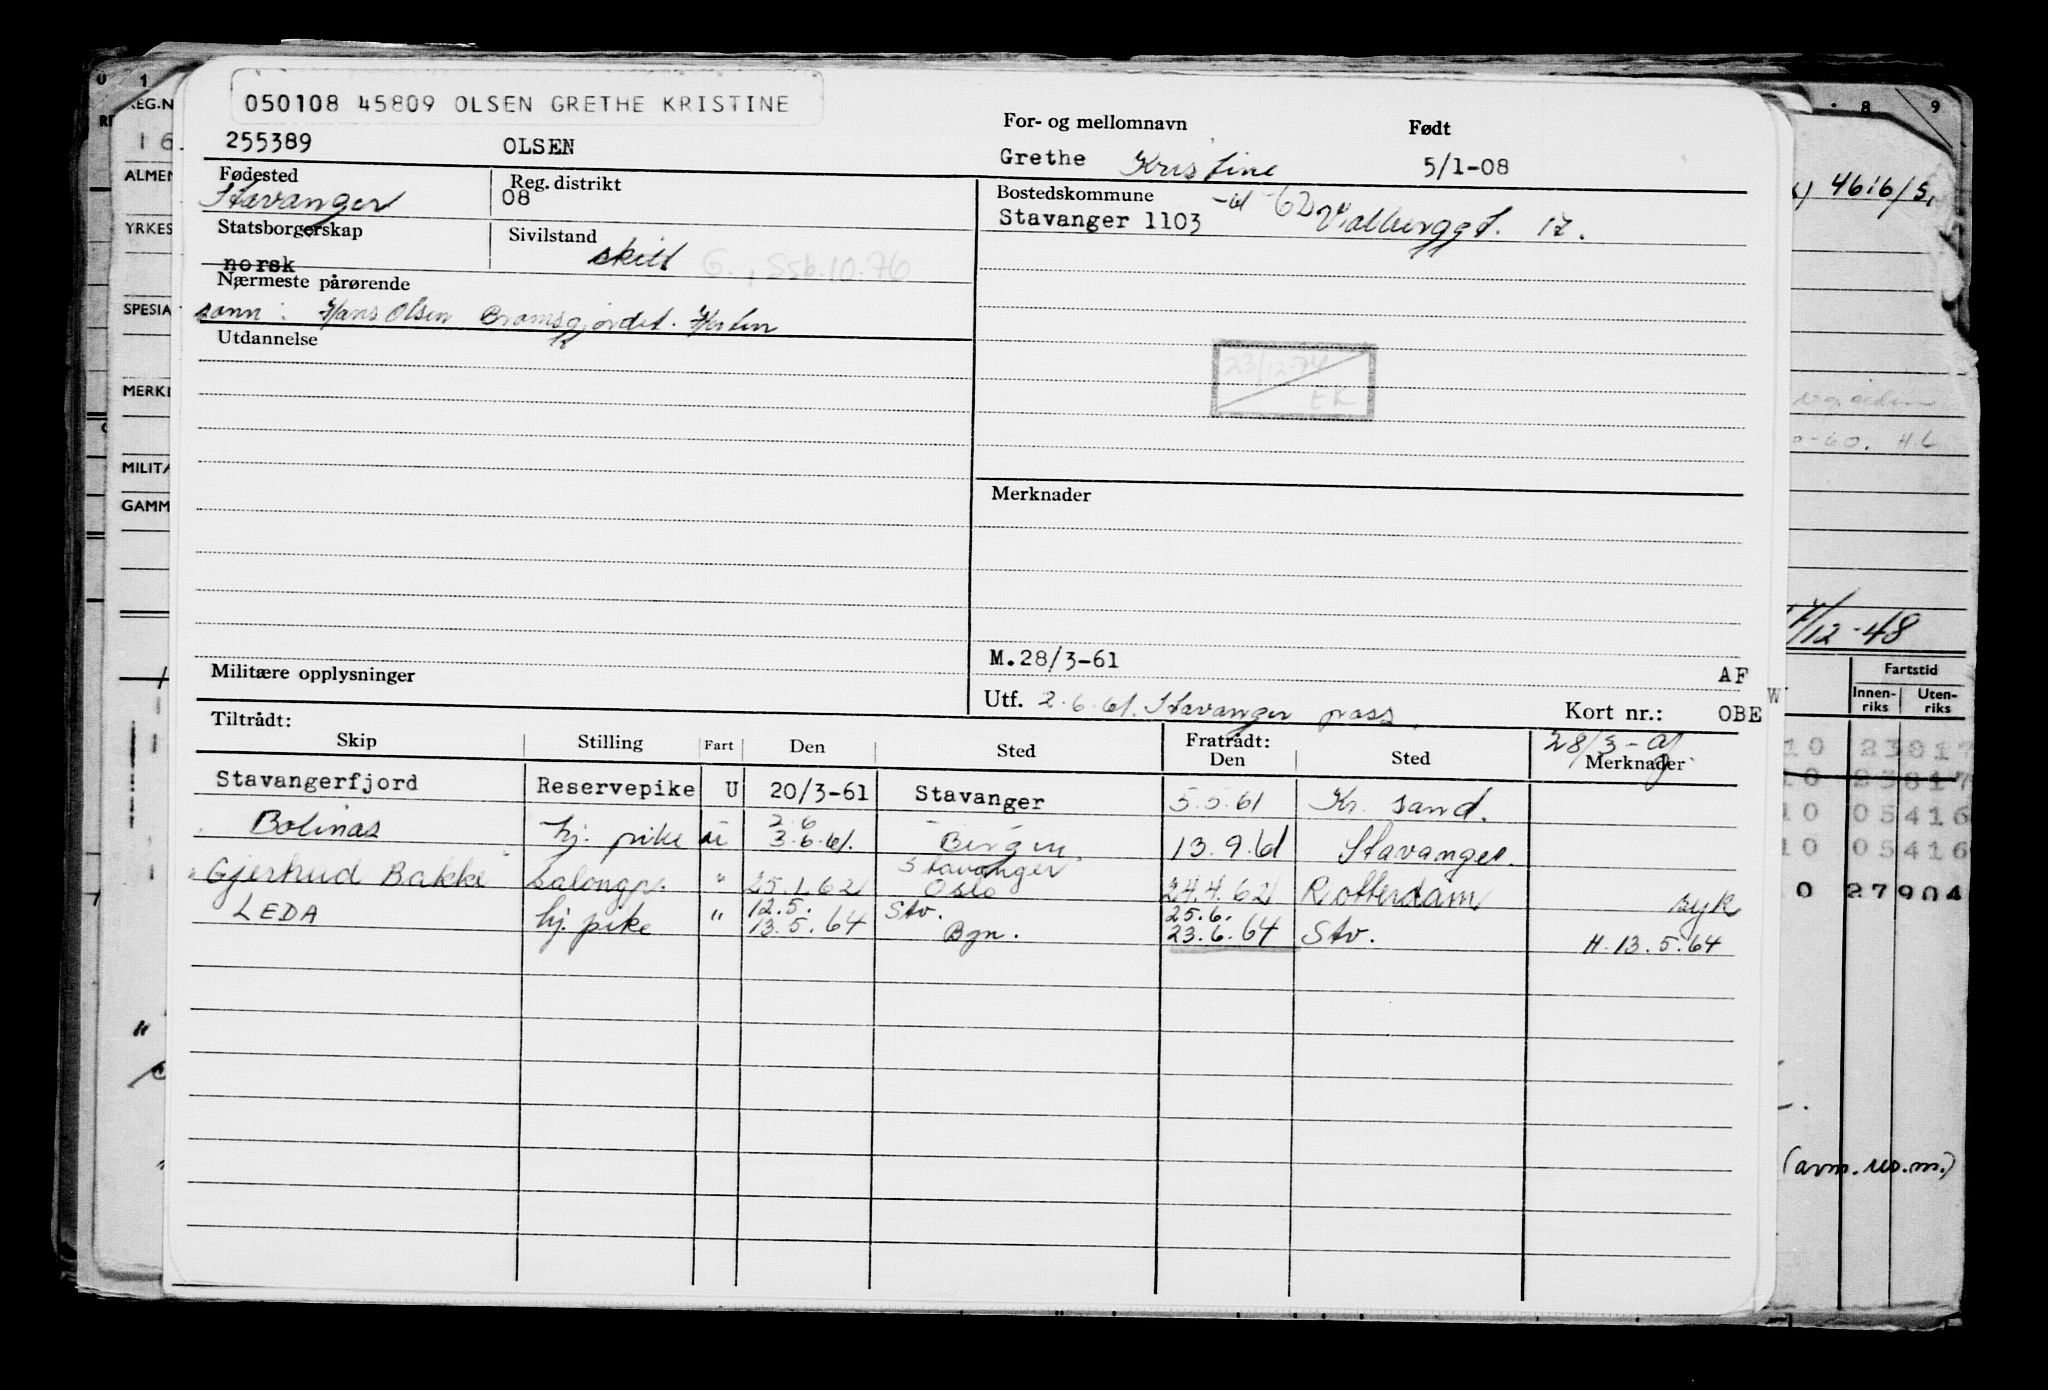 050108 45809 OLSEN GRETHE KRISTINE
255389 OLSEN
For- og mellomnavn Født
Grethe Kristine 5/1-08
Fødested Reg. distrikt
Stavanger 08
Bostedskommune -61 -62
Stavanger 1103 Valberggt. 17.
Statsborgerskap Sivilstand
norsk skilt G., Ssb.10.76
Nærmeste pårørende
sønn: Hans Olsen
Utdannelse
23/12-74
EK
Merknader
M.28/3-61
AF
Militære opplysninger
Utf. 2.6.61. Stavanger pass.
Kort nr.: OBE W
28/3-
Tiltrådt: Fratrådt:
Skip Stilling Fart Den Sted Den Sted Merknader
Stavangerfjord Reservepike U 20/3-61 Stavanger 5.5.61 Kr. sand.
2.6
Bolinas hj. pike u 3.6.61. Bergen 13.9.61 Stavanger.
Stavanger
Gjerhud Bakke Salongp. " 25.1.62 Oslo 24.4.62 Rotterdam syk
12.5. Stv. 25.6.
LEDA hj. pike " 13.5.64 Bgn. 23.6.64 Stv. H.13.5.64
U 1
REG.N
16
ALMEN
YRKES
SPESIA
MERKN
MILITA
GAMM
8 9
4616/S
0-60. H.L
/12-48
Fartstid
Innen-riks Uten-riks
10 23817
10 23817
10 05416
10 05416
0 27904
(arm. res. m.)